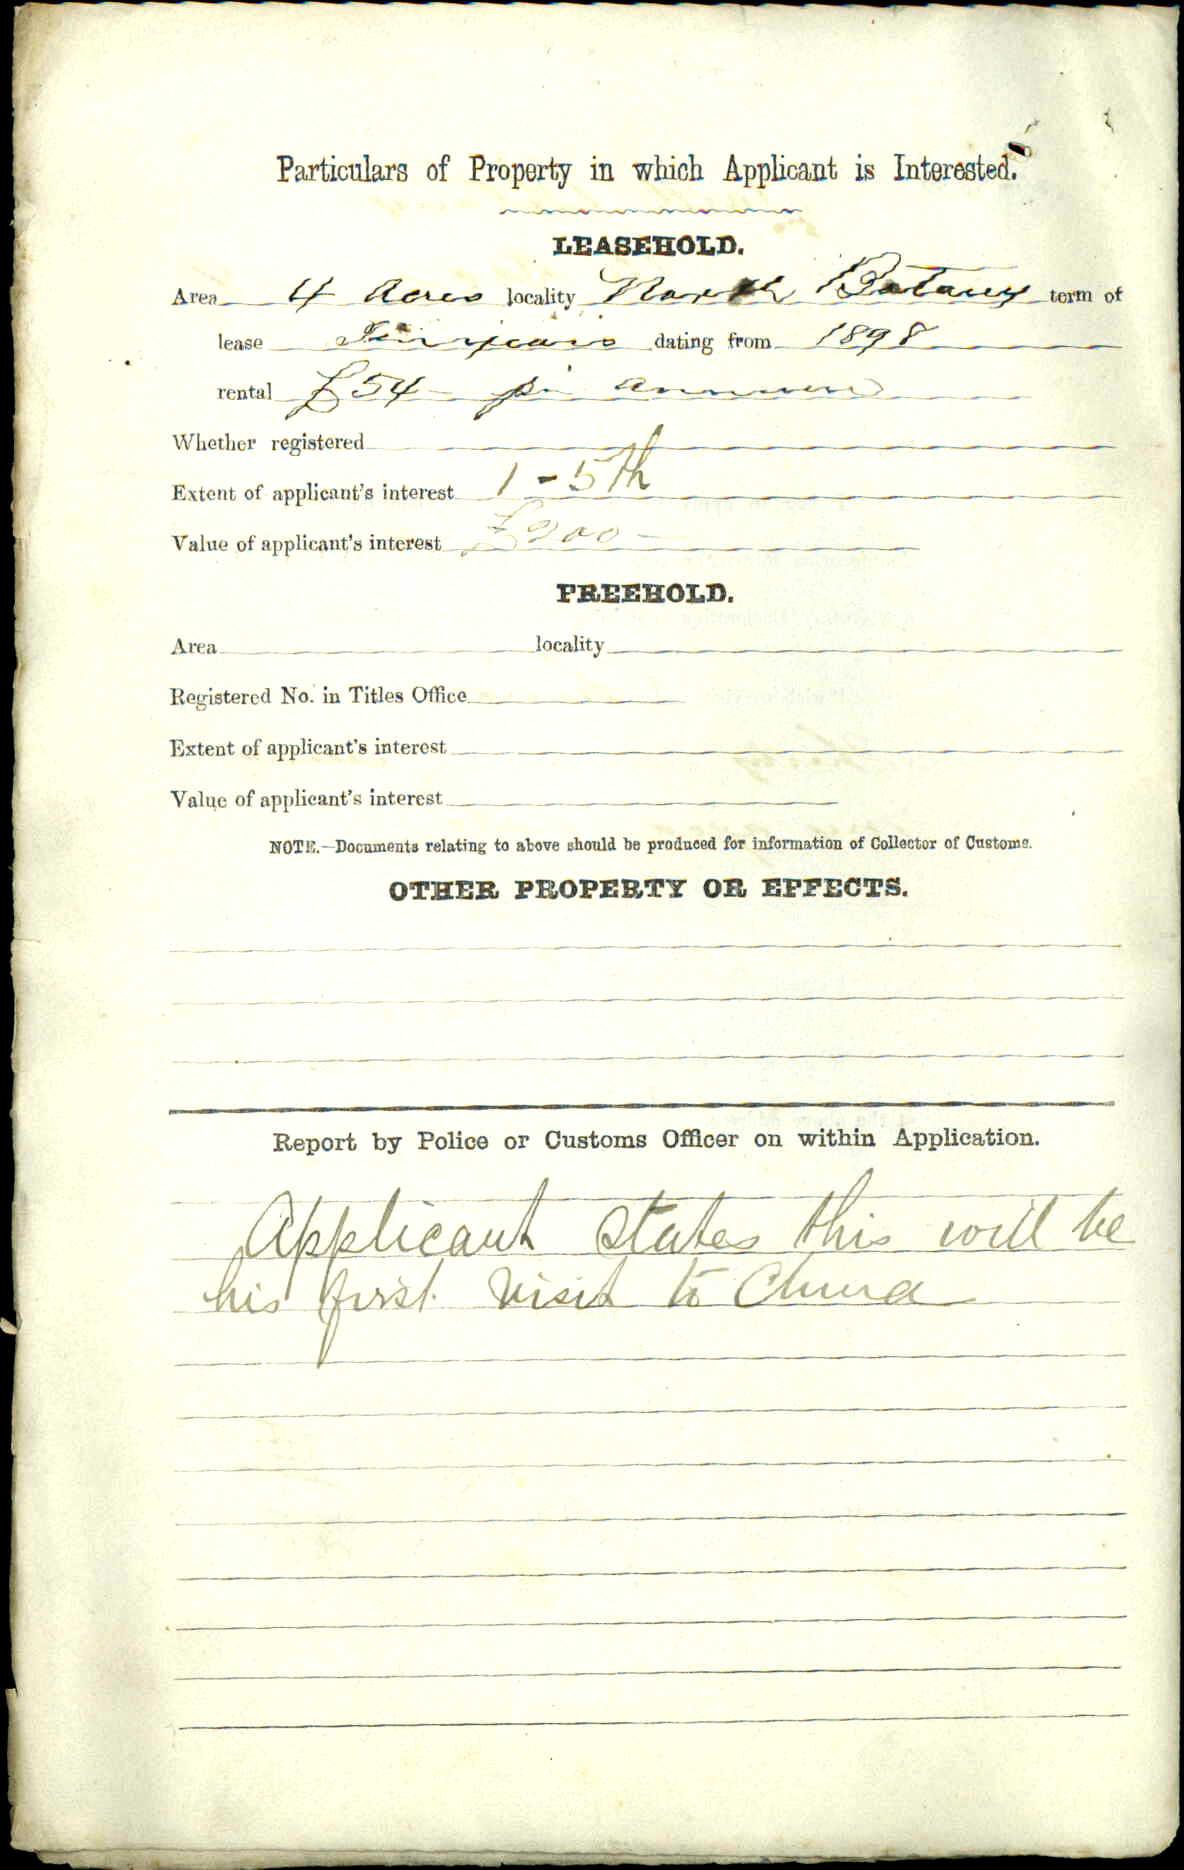 Particulars of Property in which Applicant is Interested.
LEASEHOLD.
Area 4 Acres locality North Botany term of
lease Ten years dating from 1898
rental £54 - per annum
Whether registered
Extent of applicant's interest 1-5th
Value of applicant's interest £200 -
FREEHOLD.
Area locality
Registered No. in Titles Office
Extent of applicant's interest
Value of applicant's interest
NOTE.—Documents relating to above should be produced for information of Collector of Customs.
OTHER PROPERTY OR EFFECTS.
Report by Police or Customs Officer on within Application.
Applicant states this will be
his first visit to China